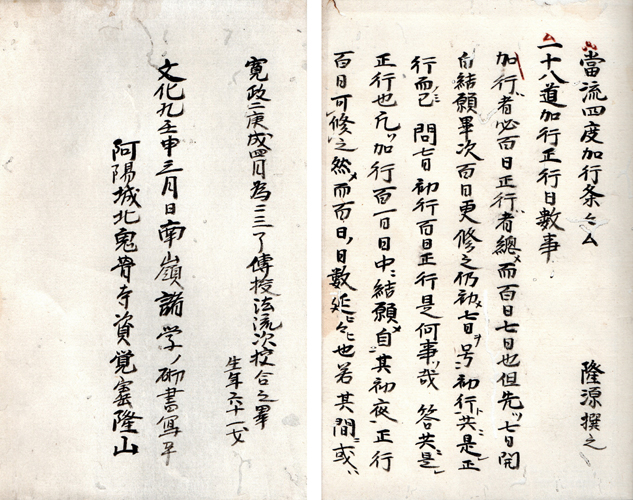 當流四度加行条々
隆源撰之
一十八道加行正行日數事
加行者必百日正行者總而百日七日也但先七日開
白結願畢次百日更修之仍初七日号初行共是正
行而已 問百日初行百日正行是何事哉 答共是
正行也凡加行百一日日中結願自其初夜正行
百日可修之然而百日日數延々也若其間或
寛政二庚戌四月為三了傳授法流次挍合之畢
生年六十一才
文化九壬申三月日南嶺諭学ノ砌書写畢
阿陽城北鬼骨寺資覚 隆山